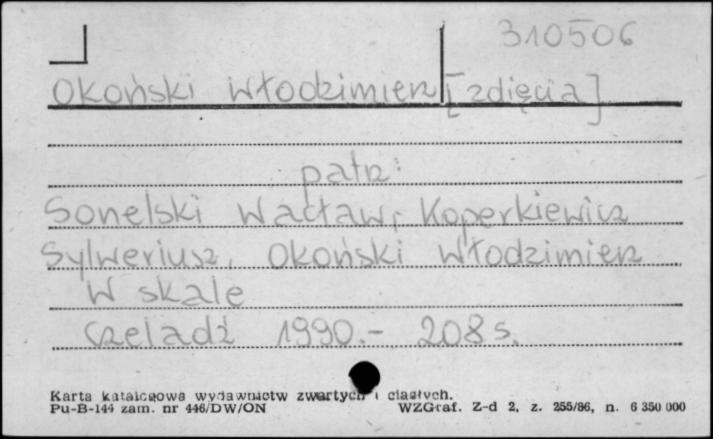 310506
Okoński Włodzimierz [zdjęcia]
patrz:
Sonelski Wacław, Koperkiewicz
Sylweriusz, Okoński Włodzimierz
W skale
Czeladź 1990.- 208 s.
Karta katalogowa wydawnictw zwartych i ciągłych.
Pu-B-144 zam. nr 446/DW/ON WZGraf. Z-d 2, z. 255/86, n. 6 350 000